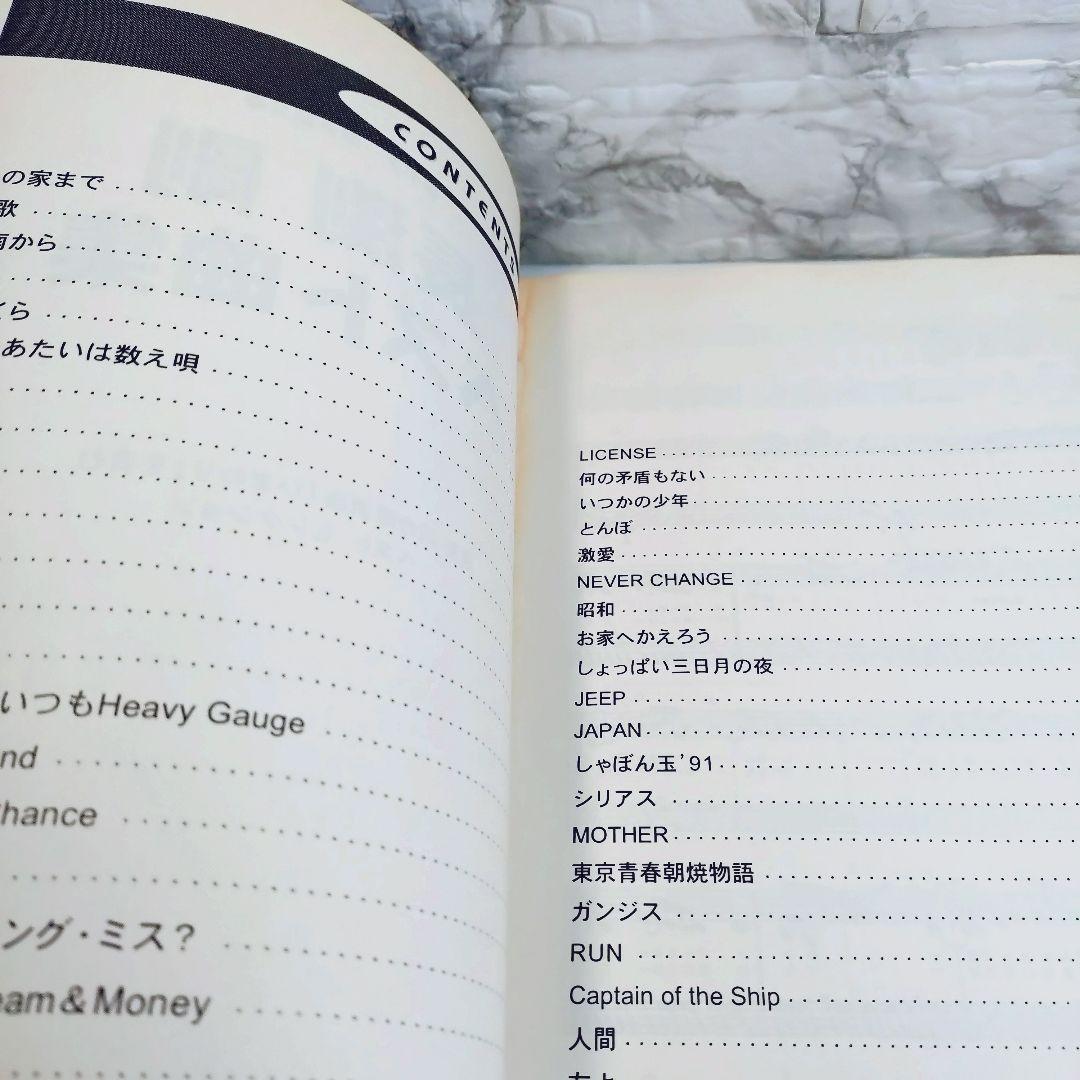 CONTENTS
の家まで
歌
から
ら
あたいは数え唄
いつもHeavy Gauge
nd
hance
ング・ミス？
eam＆Money
LICENSE
何の矛盾もない
いつかの少年
とんぼ
激愛
NEVER CHANGE
昭和
お家へかえろう
しょっぱい三日月の夜
JEEP
JAPAN
しゃぼん玉'91
シリアス
MOTHER
東京青春朝焼物語
ガンジス
RUN
Captain of the Ship
人間